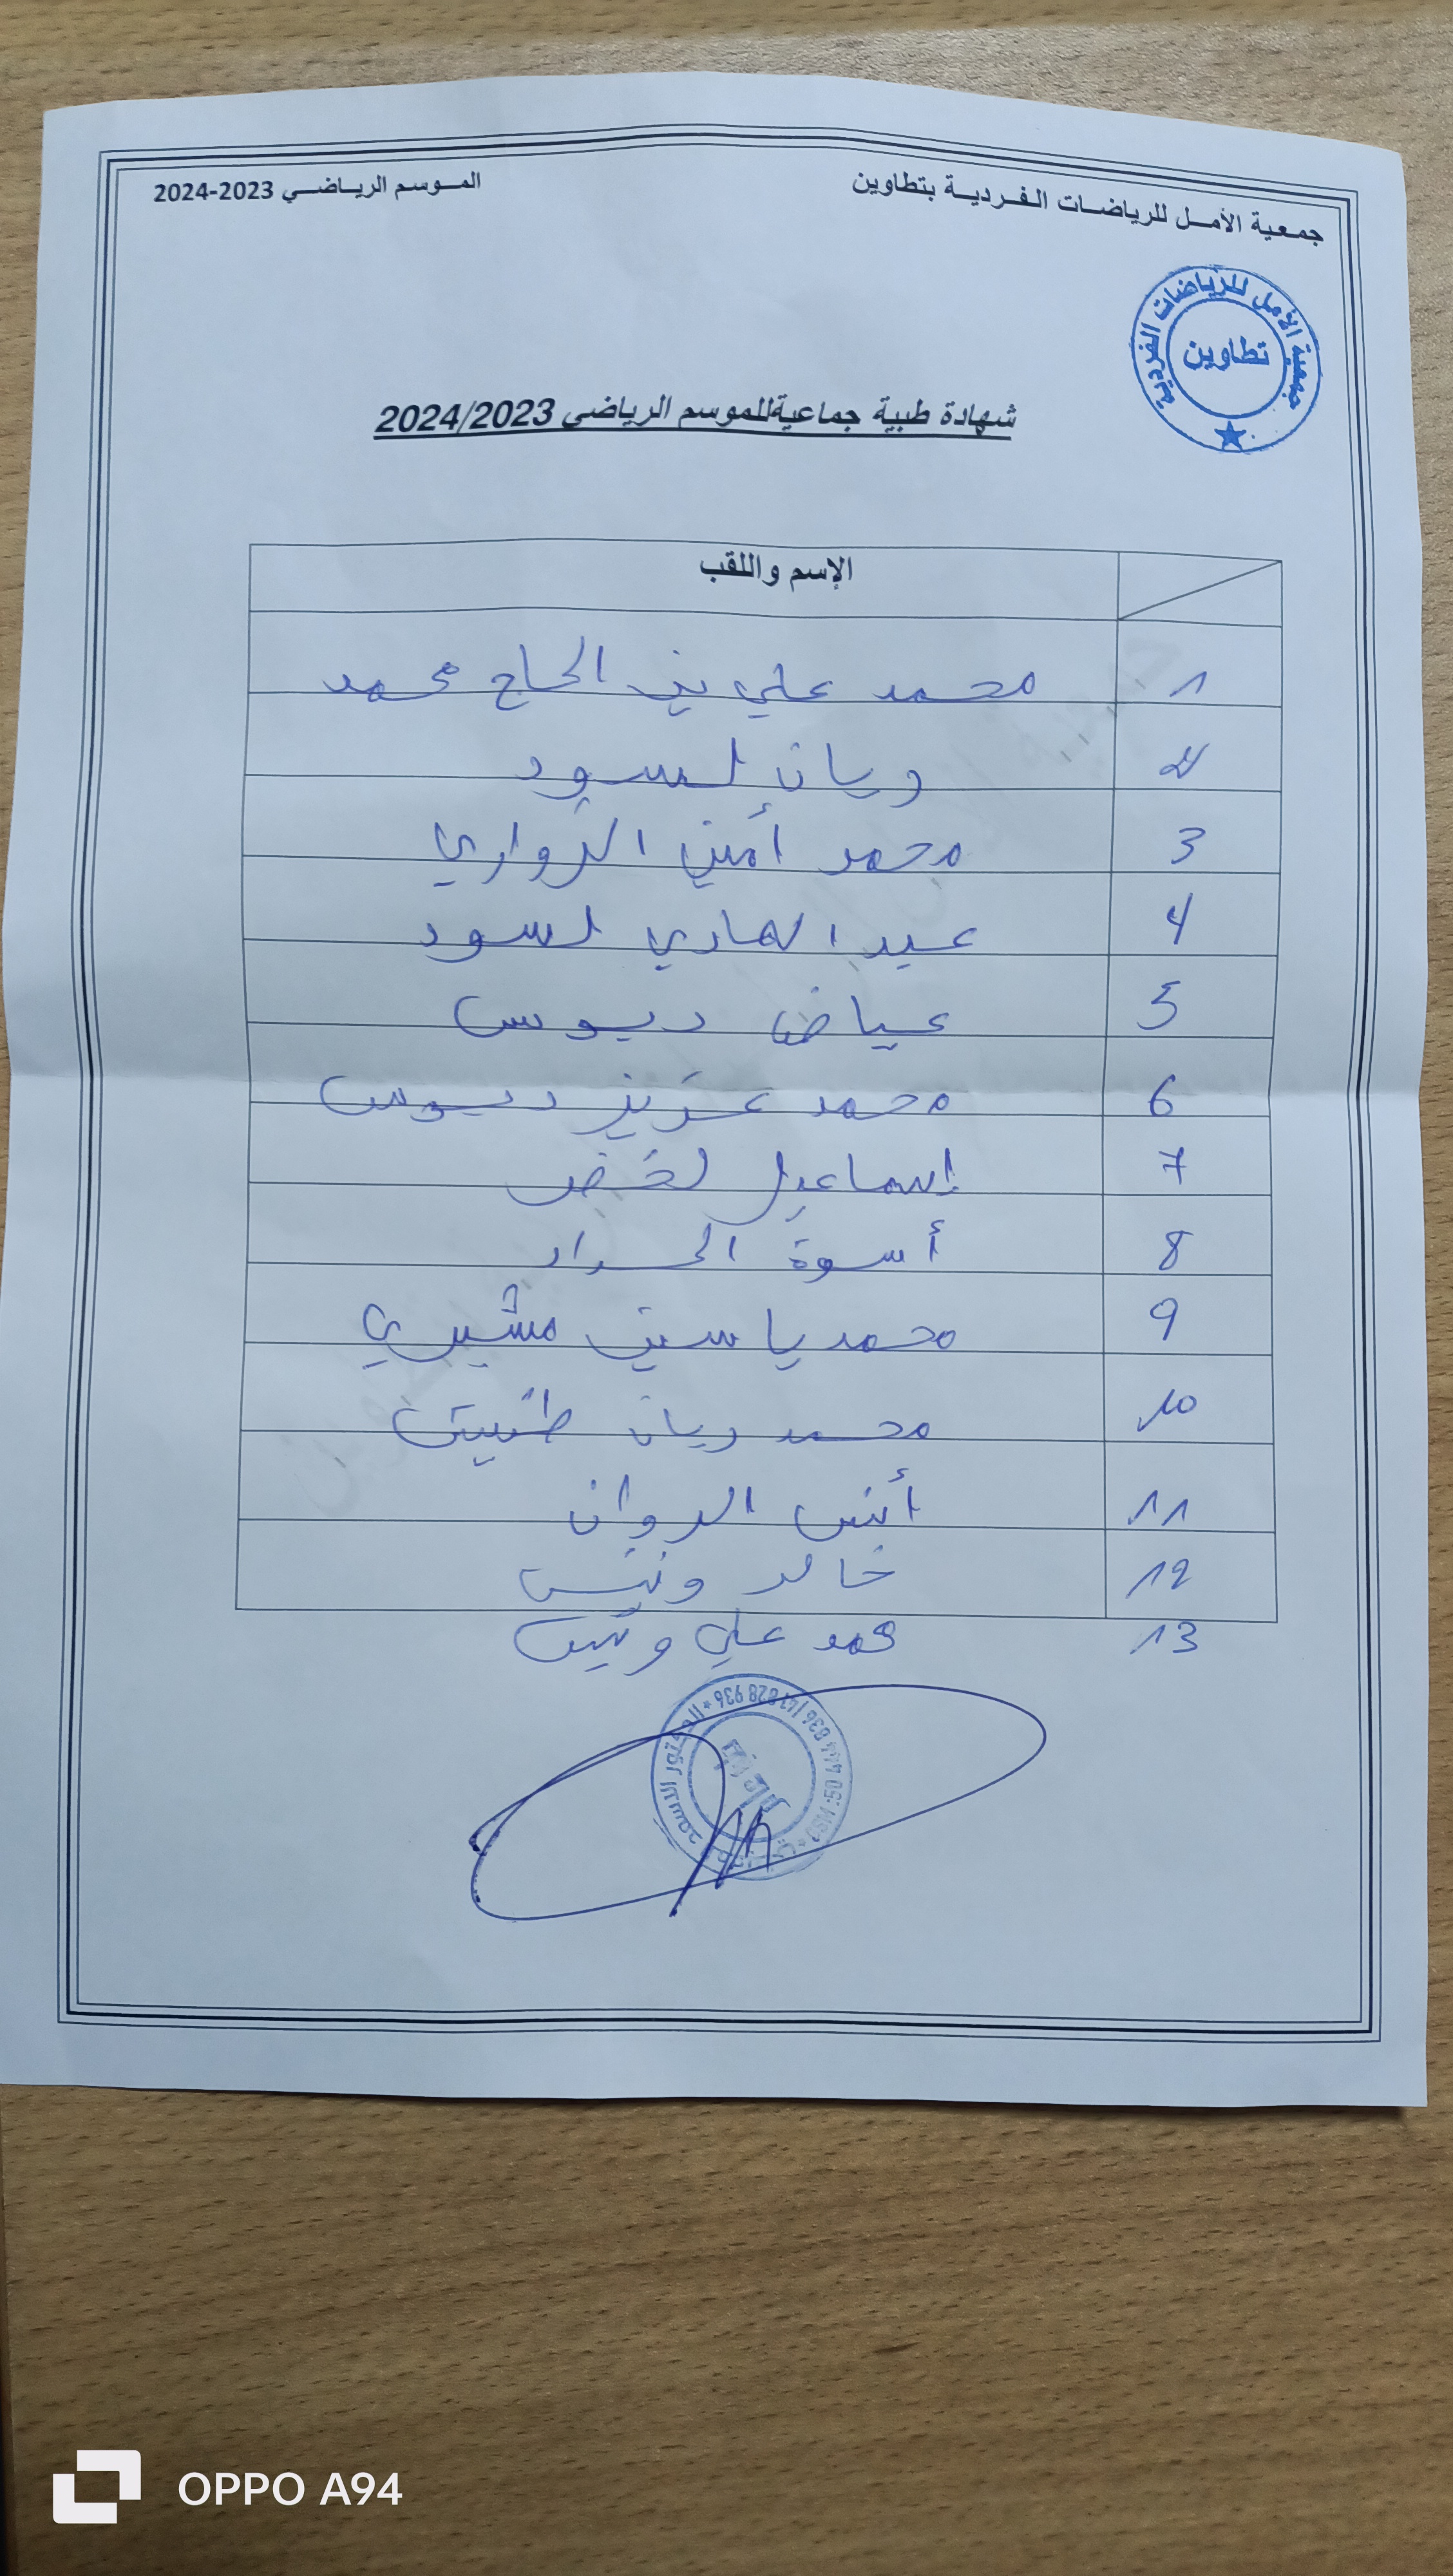 جمعية الأمل للرياضات الفردية بتطاوين
الموسم الرياضي 2023-2024
جمعية الأمل للرياضات الفردية
تطاوين
شهادة طبية جماعية للموسم الرياضي 2024/2023
الإسم واللقب
1 محمد علي بن الحاج محمد
2 ريان لسود
3 محمد أمين الزواري
4 عبد الهادي لسود
5 عياض دبوس
6 محمد عزيز دبوس
7 إسماعيل لخضر
8 أسوة الحداد
9 محمد ياسين مشيري
10 محمد ريان
11 أنس
12 خالد ونيس
13 محمد علي ونيس
OPPO A94